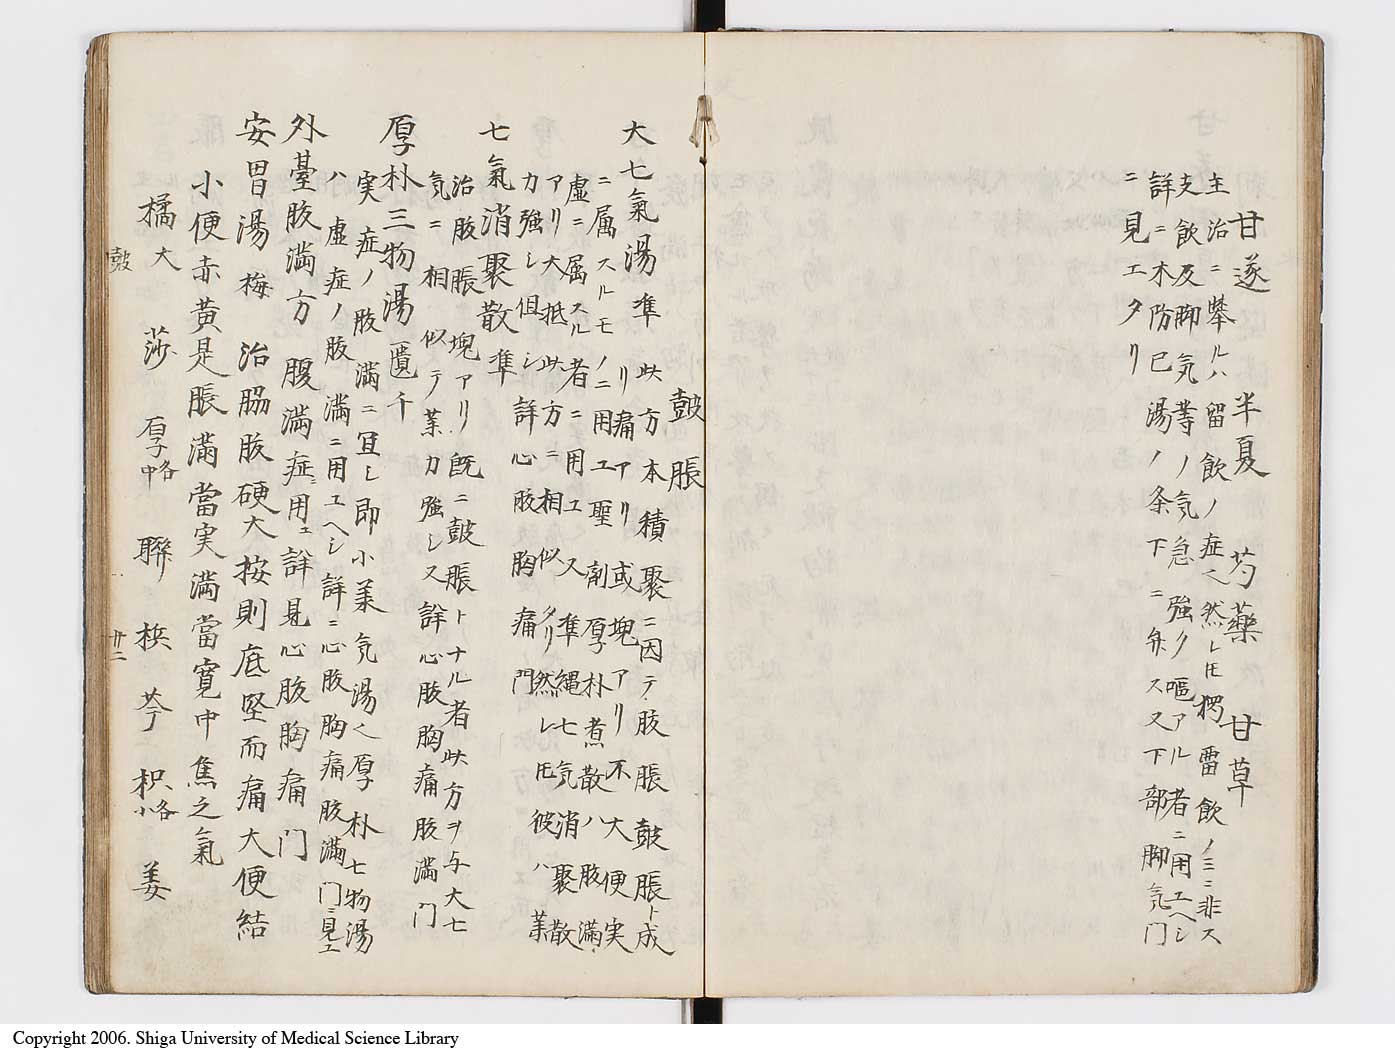 甘遂　半夏　芍薬　甘草
主治ニ挙ルハ留飲ノ症也然レ𪜈 留飲ノミニ非ス
支飲及脚気等ノ気急強ク嘔アル者ニ用エヘシ
詳ニ木防已湯ノ条下ニ弁ス又下部脚気門
ニ見エタリ
鼓脹
大七氣湯準 此方本積聚ニ因テ肢脹鼓脹ト成
リ痛アリ或塊アリ不大便実
ニ属スルモノニ用エ聖剤厚朴煮散ハ肢満
虚ニ属スル者ニ用エ又準縄七気消聚散
アリ大抵此方ニ相似タリ然レ𪜈彼ハ薬
力強シ但シ詳心肢胸痛門
七氣消聚散準
治肢脹塊アリ既ニ鼓脹トナル者此方ヲ与大七
気ニ相似テ薬力強シ又詳心肢胸痛肢満門
厚朴三物湯匱千
実症ノ肢満ニ宜シ即小業気湯也厚朴七物湯
ハ虚症ノ肢満ニ用エヘシ詳ニ心肢胸痛肢満門ニ見エ
外臺肢満方 腹満症ニ用エ詳見心肢胸痛門
安胃湯梅 治脇肢硬大按則底堅而痛大便結
小便赤黄是脹満當実満當寛中焦之氣
橘大 莎 厚中各 聯 梹 芩 枳小各 姜
鼓
廿二
Copyright 2006. Shiga University of Medical Science Library